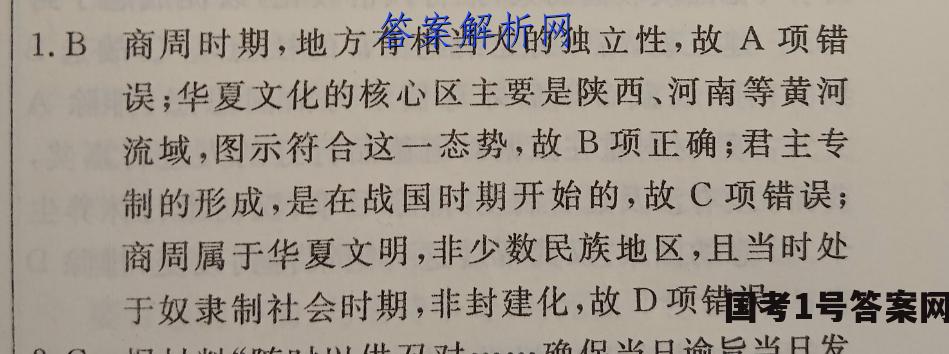 答案解析网
1.B 商周时期,地方有相当大的独立性,故 A 项错
误;华夏文化的核心区主要是陕西、河南等黄河
流域,图示符合这一态势,故 B 项正确;君主专
制的形成,是在战国时期开始的,故 C 项错误;
商周属于华夏文明,非少数民族地区,且当时处
于奴隶制社会时期,非封建化,故 D 项错误
国考1号答案网
确保当日谕旨当日发